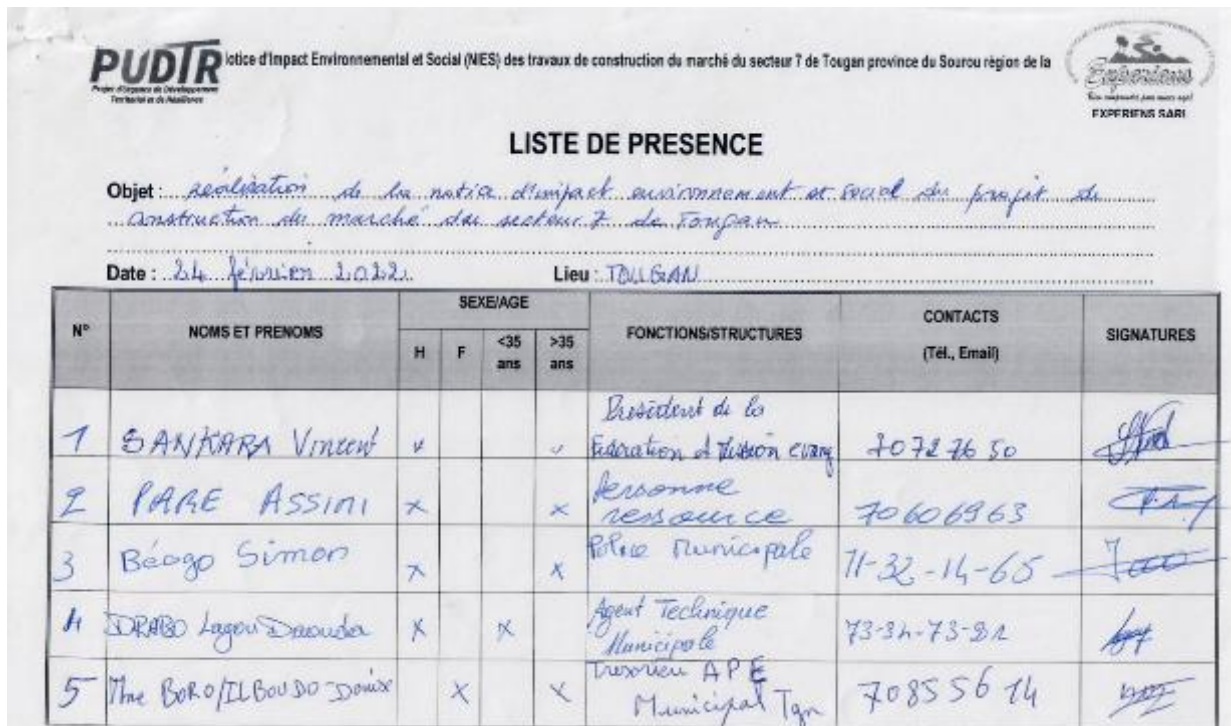 PUDTR
Projet d'Urgence de Développement
Territorial et de Résilience
lotice d'Impact Environnemental et Social (NIES) des travaux de construction du marché du secteur 7 de Tougan province du Sourou région de la
Experiens
EXPERIENS SARL
LISTE DE PRESENCE
Objet : réalisation de la notice d'impact environnement et social du projet de
construction du marché du secteur 7 de Tougan
Date : 24 février 2022 Lieu : TOUGAN
N° NOMS ET PRENOMS SEXE/AGE H F <35 ans >35 ans FONCTIONS/STRUCTURES CONTACTS (Tél., Email) SIGNATURES
1 SANKARA Vincent Président de la
Fédération et Mission evang 70727650
2 PARE ASSIMI x x Personne
ressource 70606963
3 Béogo Simon x x Police Municipale 71-32-14-65
4 DRABO Lagou Daouda x x Agent Technique
Municipale
5 Mme BORO/ILBOUDO Denise x x Tresorière APE
Municipal Tgn 70855614